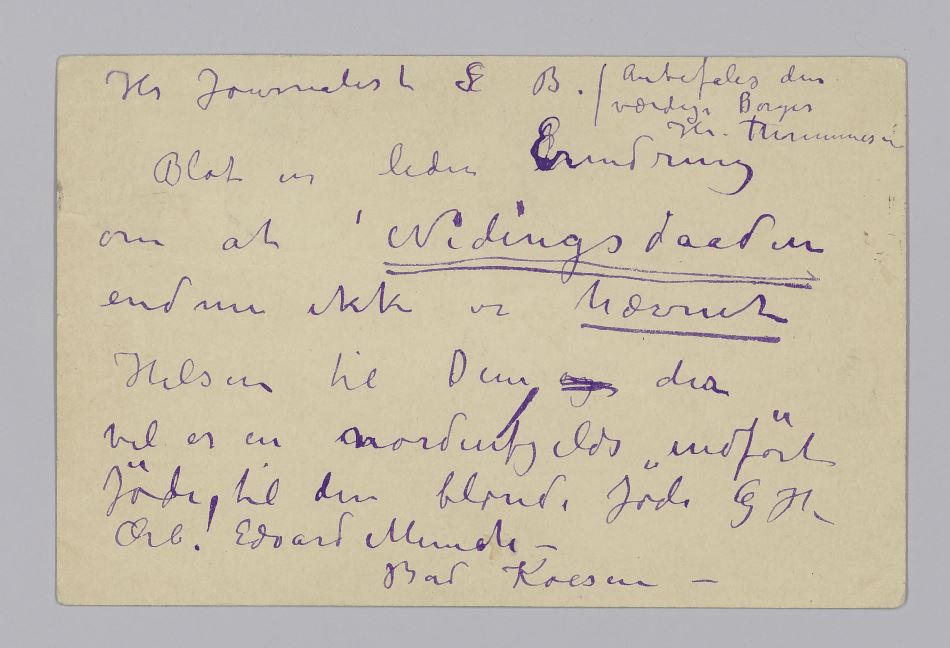 Hr Journalist L B. / Anbefales den
værdige Borger
Hr. Thrinumesen
Blot en liden Erindring
om at 'Nidingsdaaden
endnu ikke er hævnet
Hilsen til Dem der
vel er en nordenfjelds „indført"
Jöde, til den blonde Jøde G H.
Ærb. ! Edvard Munch –
Bad Koesen –